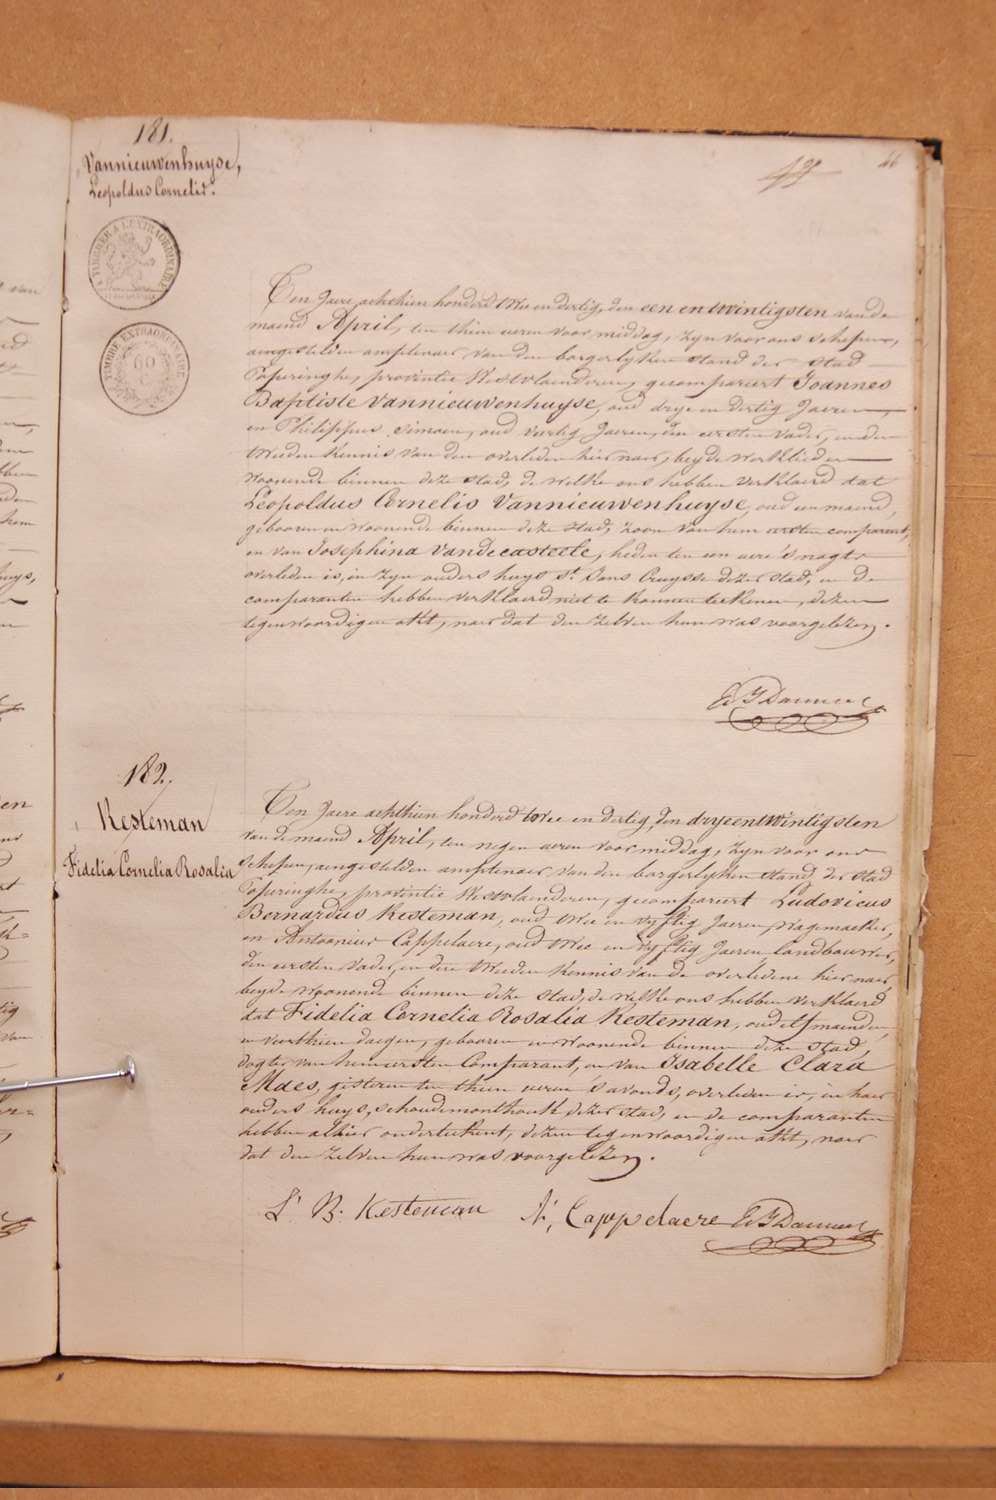 181.
Vannieuwenhuyse,
Leopoldus Cornelis.
TIMBRE A L'EXTRAORDINAIRE
TIMBRE EXTRAORDINAIRE
46
Ten Jaere achthien honderd twee en dertig, den een en twintigsten van de
maend April, ten thien ueren voor middag, zyn voor ons schepen,
aengestelden amptenaer van den borgerlyken stand der stad
Poperinghe, provintie Westvlaenderen, gecompareert Joannes
Baptiste Vannieuwenhuyse, oud drye en dertig Jaeren,
en Philippus Simoen, oud veertig Jaeren, den eersten vader, en den
tweeden kennis van den overleden hier naer, beyde werklieden
woonende binnen deze stad, de welke ons hebben verklaerd dat
Leopoldus Cornelis Vannieuwenhuyse, oud een maend,
gebooren en woonende binnen deze stad, zoon van hem eersten comparant,
en van Josephina Vandecasteele, heden ten een uere 's nagts
overleden is, in zyn ouders huys St. Jans Cruysse dezer stad, en de
comparanten hebben verklaerd niet te konnen teekenen, dezen
tegenwoordigen akt, naer dat den zelven hun was voorgelezen.
182.
Kesteman
Fidelia Cornelia Rosalia
Ten Jaere achthien honderd twee en dertig, den drye en twintigsten
van de maend April, ten negen ueren voor middag, zyn voor ons
schepen, aengestelden amptenaer van den borgerlyken stand der stad
Poperinghe, provintie Westvlaenderen, gecompareert Ludovicus
Bernardus Kesteman, oud twee en vyftig Jaeren, wagemaeker,
en Antoonius Cappelaere, oud twee en vyftig Jaeren landbouwer,
den eersten vader, en den tweeden kennis van de overledene hier naer,
beyde woonende binnen deze stad, de welke ons hebben verklaerd
dat Fidelia Cornelia Rosalia Kesteman, oud elf maenden,
en veerthien daegen, gebooren en woonende binnen deze stad,
dogter van hem eersten Comparant, en van Isabelle Clara
Maes, gisteren ten thien ueren s'avonds, overleden is, in haer
ouders huys, schoudemonthouk dezer stad, en de comparanten
hebben alhier onderteekent, dezen tegenwoordigen akt, naer
dat den zelven hun was voorgelezen.
L. B. Kesteman A, Cappelaere